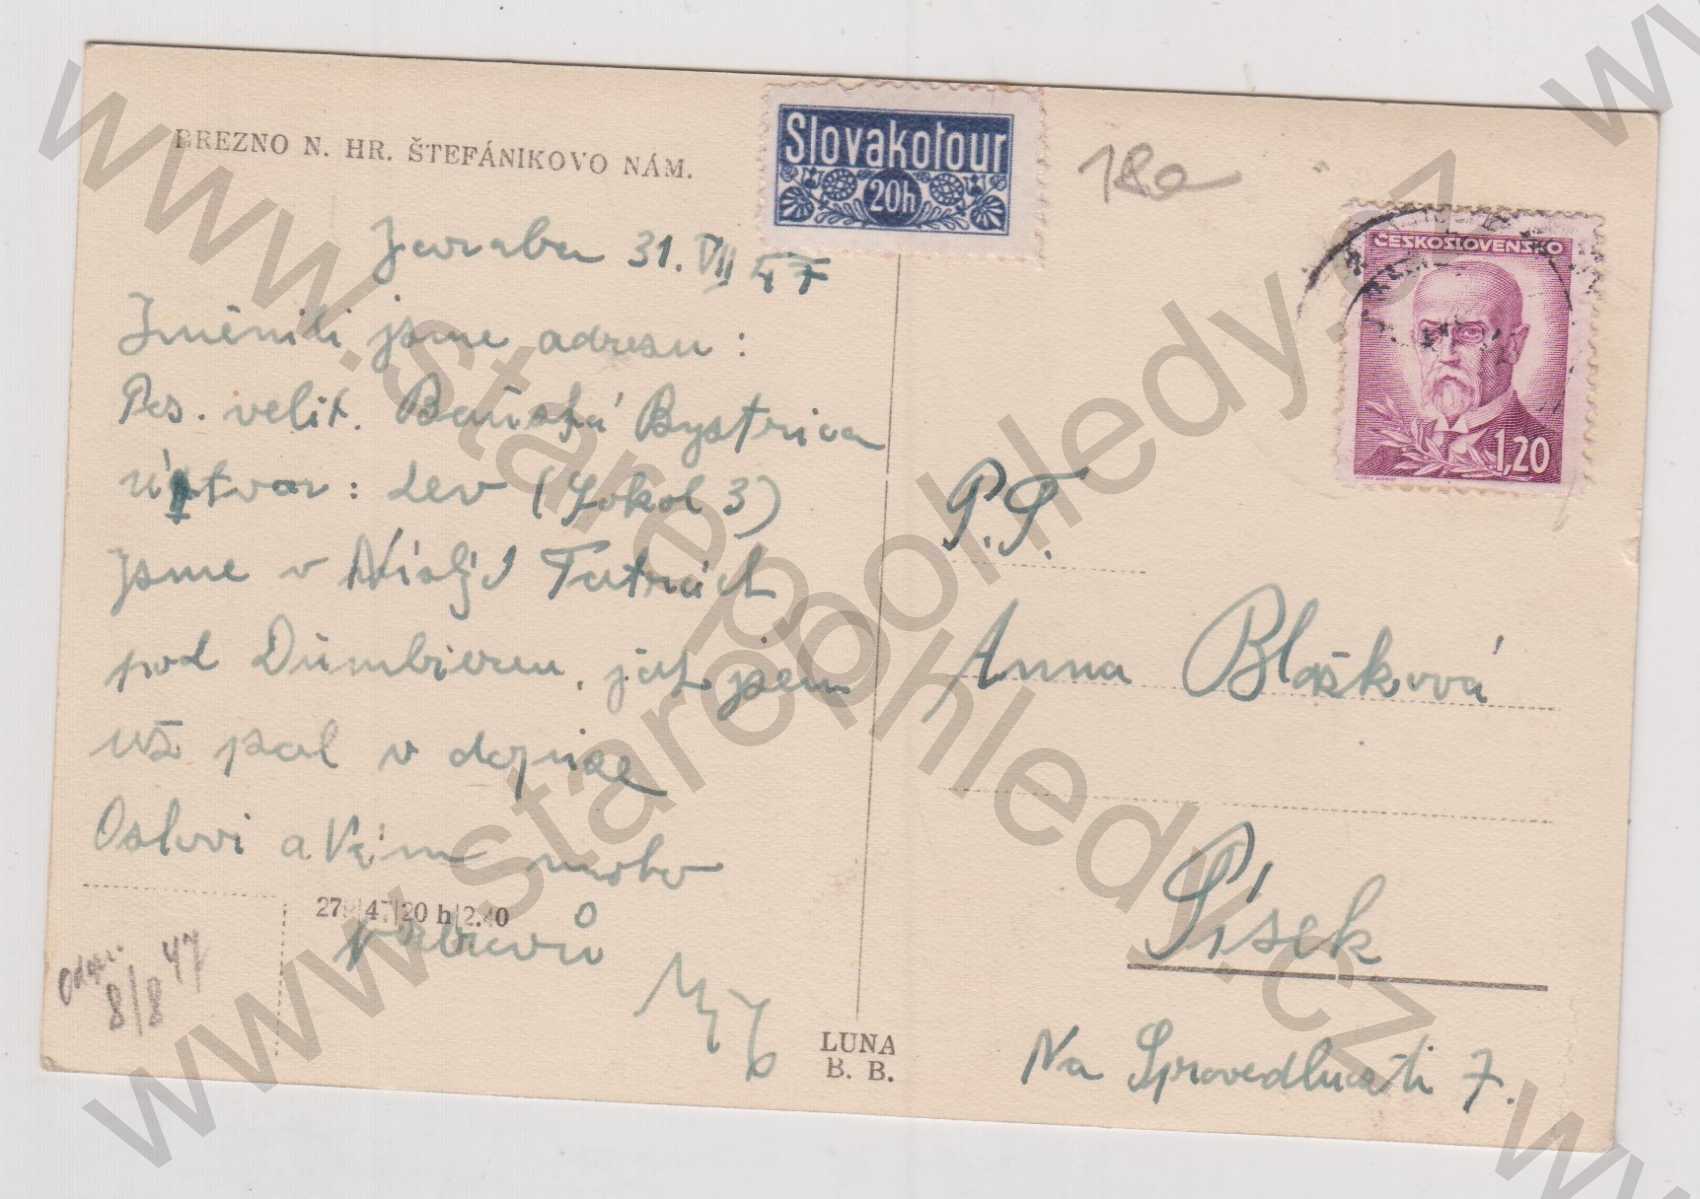 BREZNO N. HR. ŠTEFÁNIKOVO NÁM.
Slovakotour
20h
180
ČESKOSLOVENSKO
1,20
Jaraba 31. VII 47
Změnili jsme adresu:
Pos. velit. Baňská Bystrica
útvar: Lev (Sokol 3)
Jsme v Nízkých Tatrách
pod Ďumbierem, jak jsem
už psal v dopise
Oslovi a Vám moho
27 47 20 h 2.40
pozdravů
Odpov.
8/8 47
LUNA
B. B.
P.T.
Anna Blašková
Písek
Na Spravedlnosti 7.
www.starepohledy.cz
www.starepohledy.cz